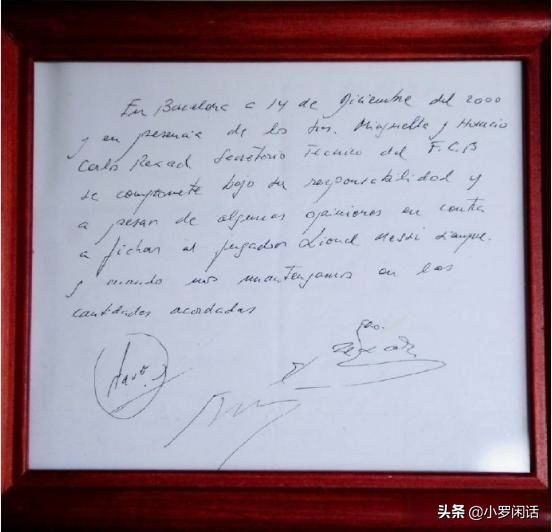 En Barcelona a 14 de Diciembre del 2000
y en presencia de los Srs. Minguella y Horacio
Carlo Rexach Secretario Tecnico del F.C.B
se compromete bajo su responsabilidad y
a pesar de algunas opiniones en contra
a fichar al jugador Lionel Messi siempre
y cuando nos mantengamos en las
cantidades acordadas
头条 @小罗闲话